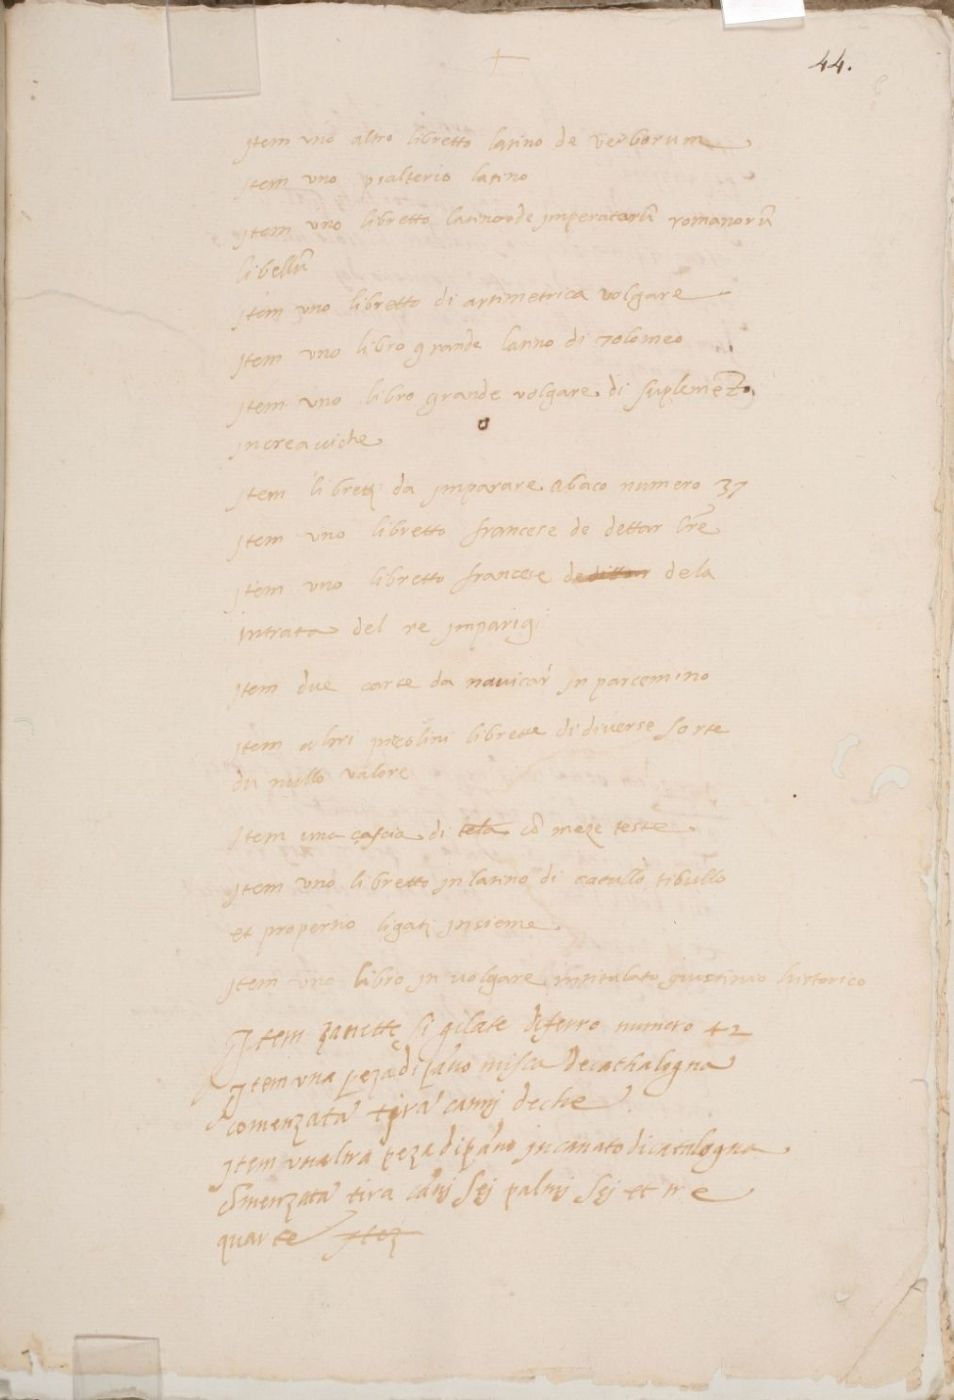 44.
Item uno altro libretto latino de verborum
Item uno psalterio latino
Item uno libretto latino de imperatorũ romanorũ
libellũ
Item uno libretto di aritmetrica volgare
Item uno libro grande latino di Tolomeo
Item uno libro grande volgare di suplemẽto
Item libretti da imparare abaco numero 37
Item uno libretto francese de dettar lr̃e
Item uno libretto francese de dettar dela
intrata del re in parigi
Item due carte da navicar in parcemino
Item altri picolini librette di diverse sorte
di nullo valore
Item una cascia di tela cõ meze teste
Item uno libretto in latino di catullo tibullo
et propertio ligati insieme
Item uno libro in volgare intitulato giustino historico
Item zanette sigilate di ferro numero 42
Item una peza di pãno de cathalogna
comenzata tira canni deche
Item unaltra peza di pãno incanato di catalogna
comenzata tira cãnj sej palmj sej et tre
quarte